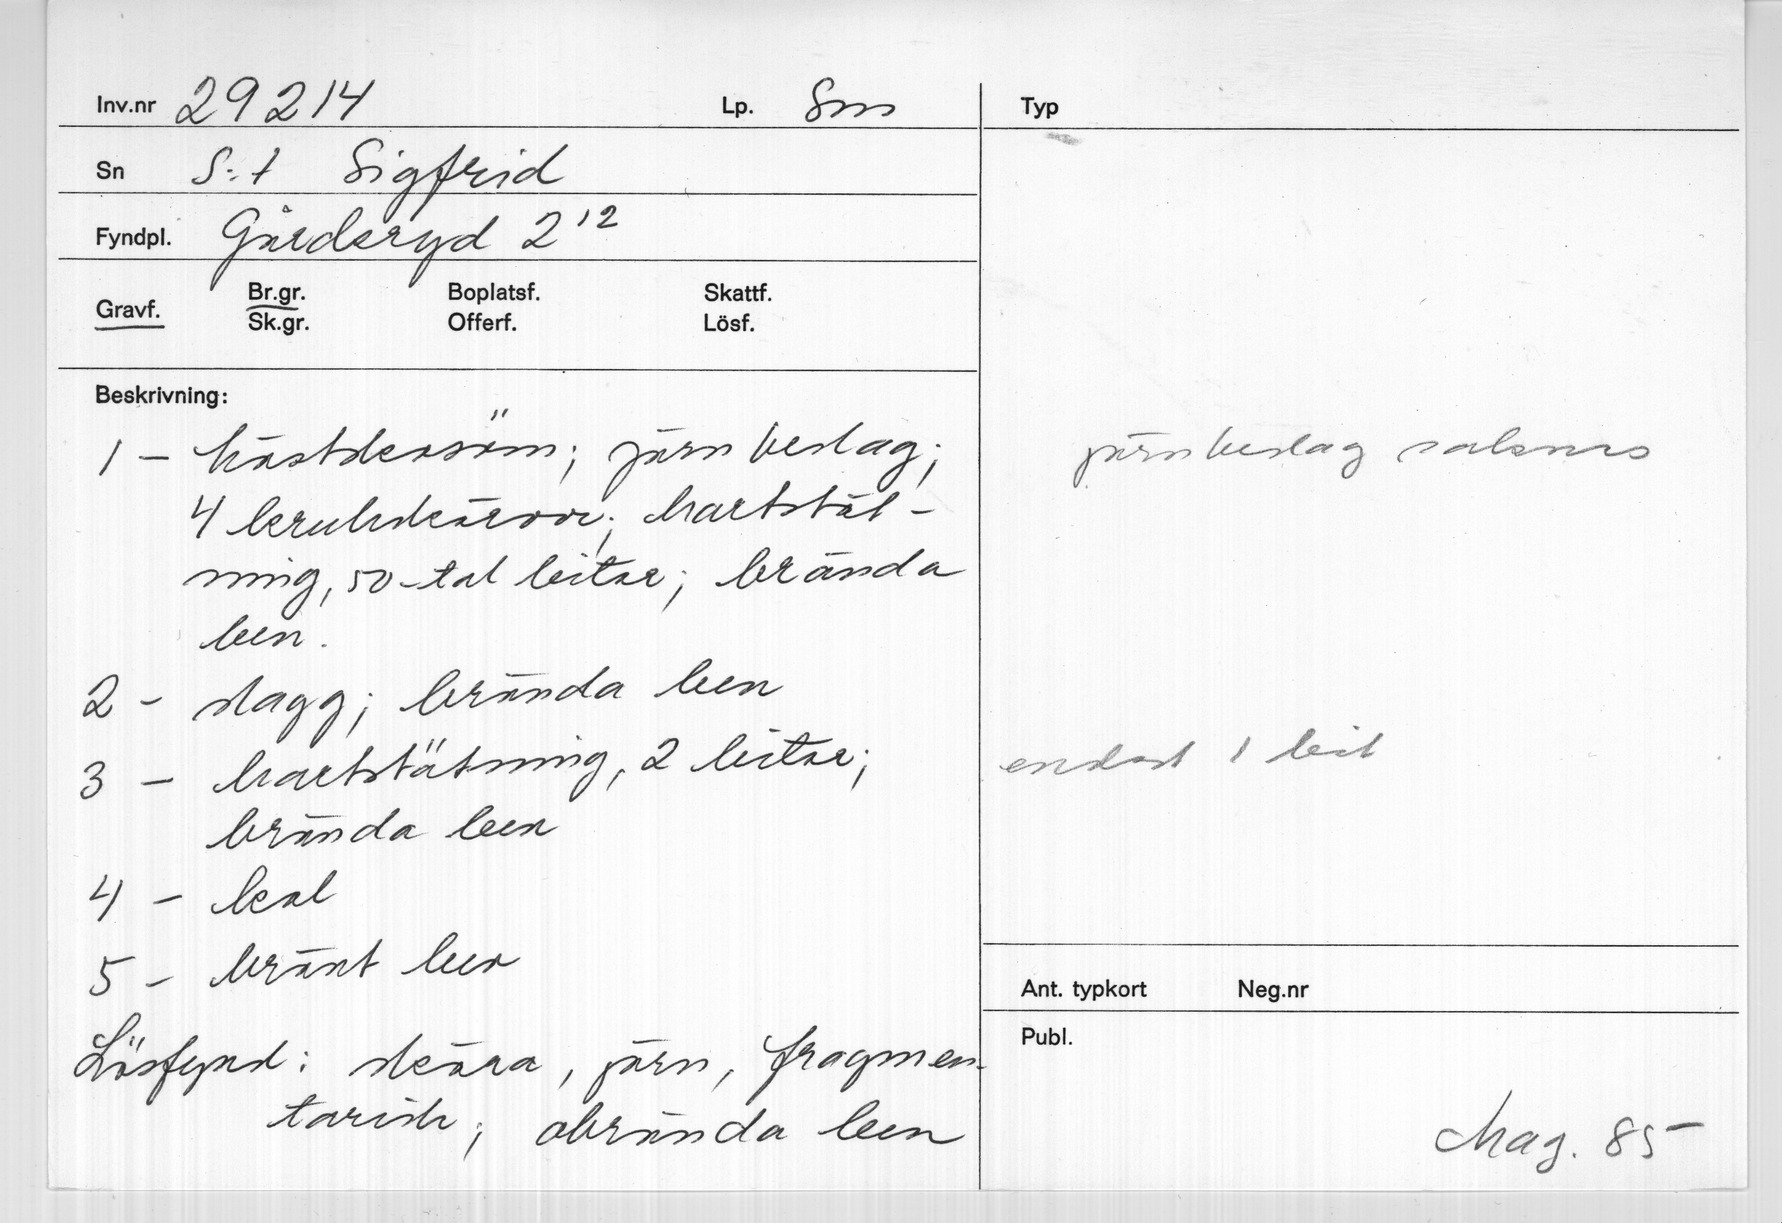 Inv.nr 29214 Lp. Sm
Typ
Sn S:t Sigfrid
Fyndpl. Gårdsryd 2¹²
Gravf. Br.gr. Boplatsf. Skattf.
Sk.gr. Offerf. Lösf.
Beskrivning:
1 – hästskosöm; järnbeslag;
järnbeslag saknas
4 krukskärvor; hartstät-
ning, 50-tal bitar; brända
ben.
2 – slagg; brända ben
3 – hartstätning, 2 bitar;
endast 1 bit
brända ben
4 – kol
5 – bränt ben
Lösfynd: skära, järn, fragmen-
tarisk; obrända ben
Ant. typkort Neg.nr
Publ.
Mag. 85